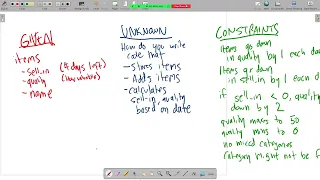 GIVEN
items
- sell_in (4 days left)
- quality
- name
UNKNOWN
How do you write
code that
- stores items
- Adds items
- calculates
sell-in, quality
based on date
CONSTRAINTS
Items go down
in quality by 1 each d
Items go down
in sell_in by 1 each d
if sell_in < 0, quality
down by 2
quality maxes to 50
quality mins to 0
no mixed categories
Category might not be f